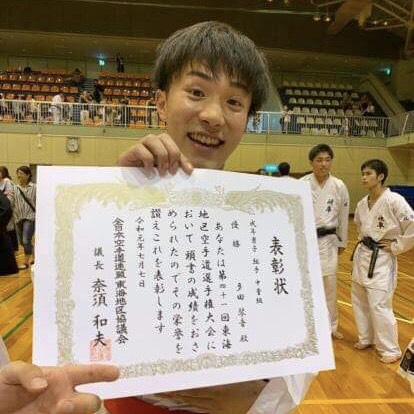 表彰状
成年男子 組手 中量級
優勝 多田 琴音 殿
あなたは第四十一回東海
地区空手道選手権大会に
おいて 頭書の成績をおさ
められたのでその栄誉を
讃えこれを表彰します
令和元年七月七日
全日本空手道連盟東海地区協議会
議長 奈須 和夫